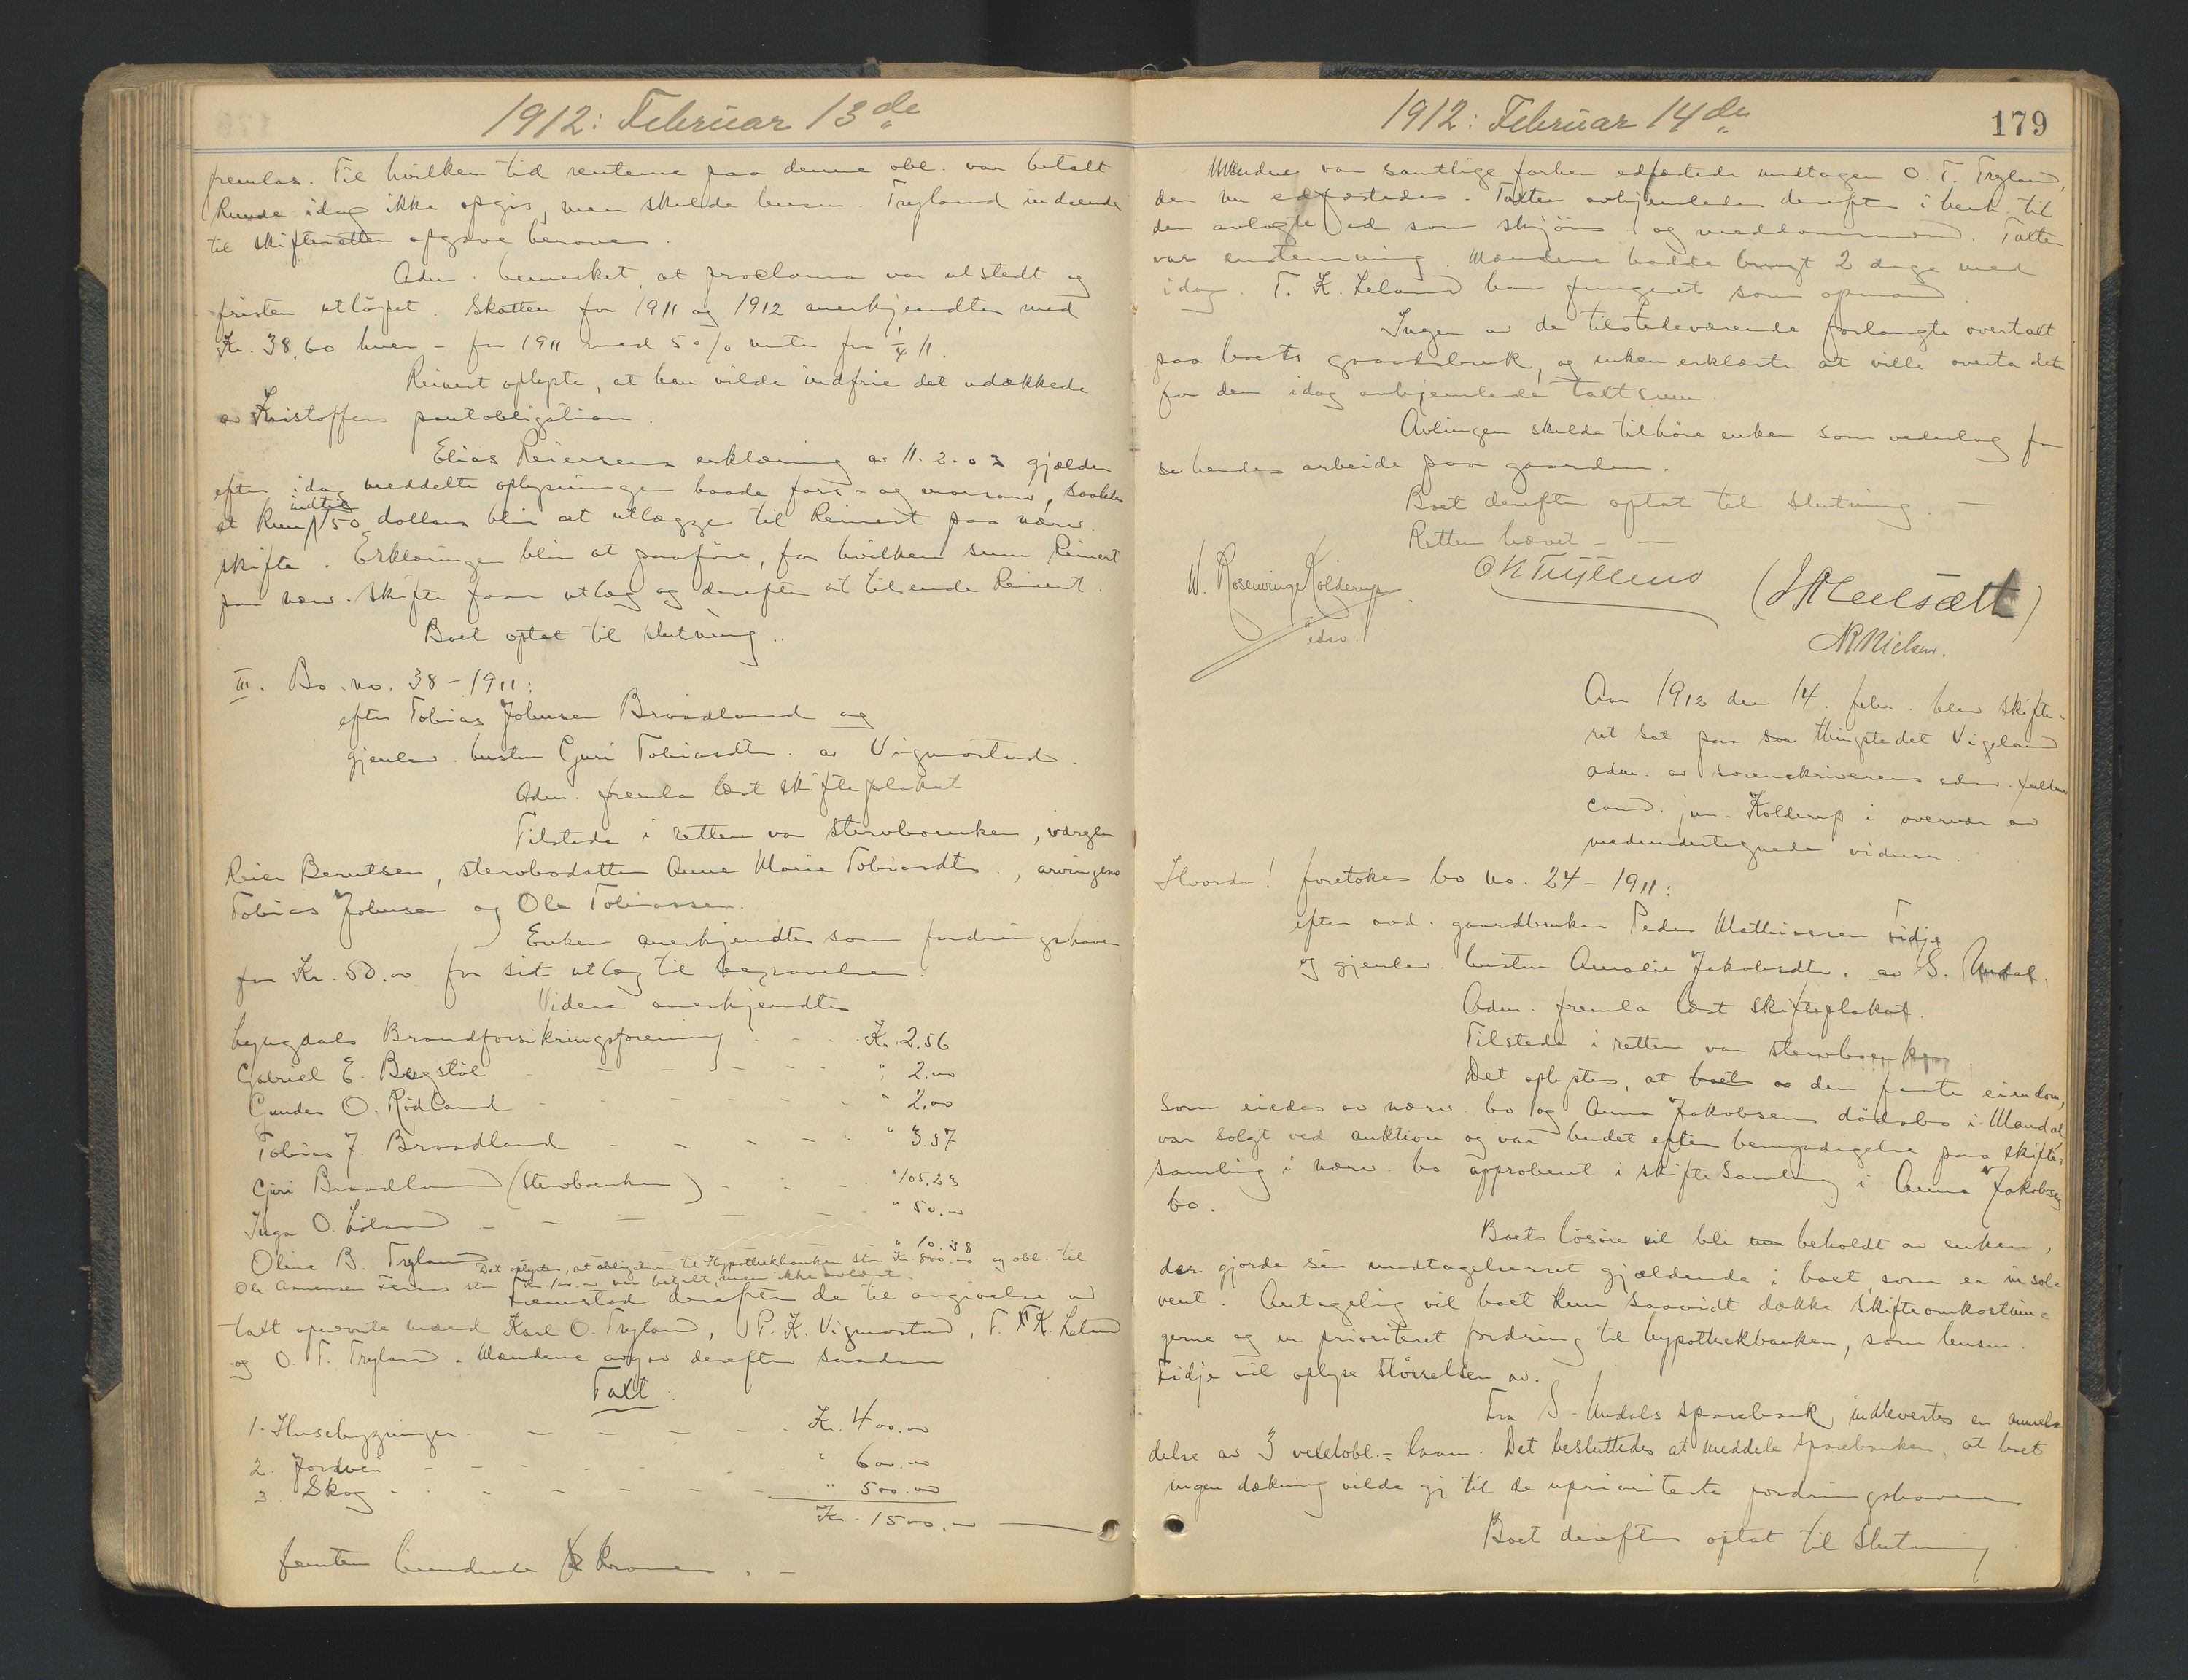 1912: Februar 13de
fremlas. Til hvilken tid renterne paa denne obl. var betalt
kunde idag ikke opgis, men skulde lensm. Trygland indsende
til skifteretten opgave herover.
Adm. bemerket, at proclama var utstedt og
fristen utløpet. Skatten for 1911 og 1912 anerkjendtes med
Kr. 38,60 hver - for 1911 med 5% rente fra 1/4 11.
Reinert oplyste, at han vilde indfrie det udækkede
av Kristoffers pantobligation.
Elias Reiersens erklæring av 11.2.03 gjælder
efter idag meddelte oplysninger baade fars- og morsarv, saaledes
at kun indtil 50 dollars blir at utlægge til Reinert paa nærv.
skifte. Erklæringen blir at paaføre, for hvilken sum Reinert
paa nærv. skifte faar utlæg og derefter at tilsende Reinert.
Boet optat til slutning.
III. Bo. no. 38 - 1911:
efter Tobias Johnsen Braadland og
gjenlev. hustru Guri Tobiasdtr. av Vigmostad.
Adm. fremla læst skifteplakat
Tilstede i retten var stervboenken, værgen
Reier Berntsen, stervbodatter Anne Marie Tobiasdtr., arvingerne
Tobias Johnsen og Ole Tobiassen.
Enken anerkjendtes som fordringshaver
for Kr. 50.00 for sit utlæg til begravelsen.
Videre anerkjendtes
Lyngdals Brandforsikringsforening - - - Kr. 2.56
Gabriel E. Bugstøl - - - - - " 2.00
Gunder O. Rødland - - - - - " 2.00
Tobias J. Braadland - - - - " 3.57
Guri Braadland (stervboenken) - - - " 105.23
Inga O. Løland - - - - - " 50.00
Oline B. Trygland " 10.38
Det oplystes, at obligation til Hypothekbanken stor Kr. 800.00 og obl. til
Ole stor Kr. 100.00 var betalt, men ikke avlæst.
Fremstod derefter de til avgivelse av
takt opnævnte mænd Karl O. Trygland, P. K. Vigmostad, T. K. Leland
og O. T. Trygland. Mændene avgav derefter saadan
Takt:
1. Husebygninger - - - - - Kr. 400.00
2. Jordvei - - - - - - " 600.00
3. Skog - - - - - - " 500.00
Kr. 1500.00
femten hundrede Kroner. -
1912: Februar 14de
179
Mændene var samtlige forhen edfæstede undtagen O. T. Trygland,
der nu edfæstedes. Taxten avhjemledes derefter i henh. til
den avlagte ed som skjøns og meddommsmænd. Taxten
var enstemmig. Mændene hadde brugt 2 dage med
idag. T. K. Leland har fungeret som opmand.
Ingen av de tilstedeværende forlangte overtakt
paa boets gaardsbruk, og enken erklærte at ville overta det
for den idag avhjemlede taktsum.
Avlingen skulde tilhøre enken som vederlag for
se hendes arbeide paa gaarden.
Boet derefter optat til slutning. -
Retten hævet - -
W. Rosenvinge Kolderup
edsv.
N Nielsen.
Aar 1912 den 14. febr. blev skifte-
ret sat paa thingstedet Vigeland
adm. av sorenskriverens edsv. fuldm.
cand. jur. Kolderup i overvær av
medundertegnede vidner.
Hvorda! foretokes bo no. 24 - 1911:
efter avd. gaardbruker Peder Mathiassen Tidje
og gjenlev. hustru Amalie Jakobsdtr. av S. Undal.
Adm. fremla læst skifteplakat.
Tilstede i retten var stervboenken.
Det oplystes, at den faste eiendom,
som eiedes av nærv. bo og Anna Jakobsens dødsbo i Mandal
var solgt ved auktion og var budet efter bemyndigelse paa skifte-
samling i nærv. bo approbert i skiftesamling i Anna Jakobsens
bo.
Boets løsøre vil bli beholdt av enken,
der gjorde sin undtagelsesret gjældende i boet, som er insol-
vent. Antagelig vil boet kun saavidt dække skifteomkostnin-
gerne og en prioritert fordring til hypothekbanken, som lensm.
Tidje vil oplyse størrelsen av.
Fra S. Undals sparebank indlevertes en anmel-
delse av 3 vexelobl.- laan. Det besluttedes at meddele sparebanken, at boet
ingen dækning vilde gi til de uprioriterte fordringshavere.
Boet derefter optat til slutning